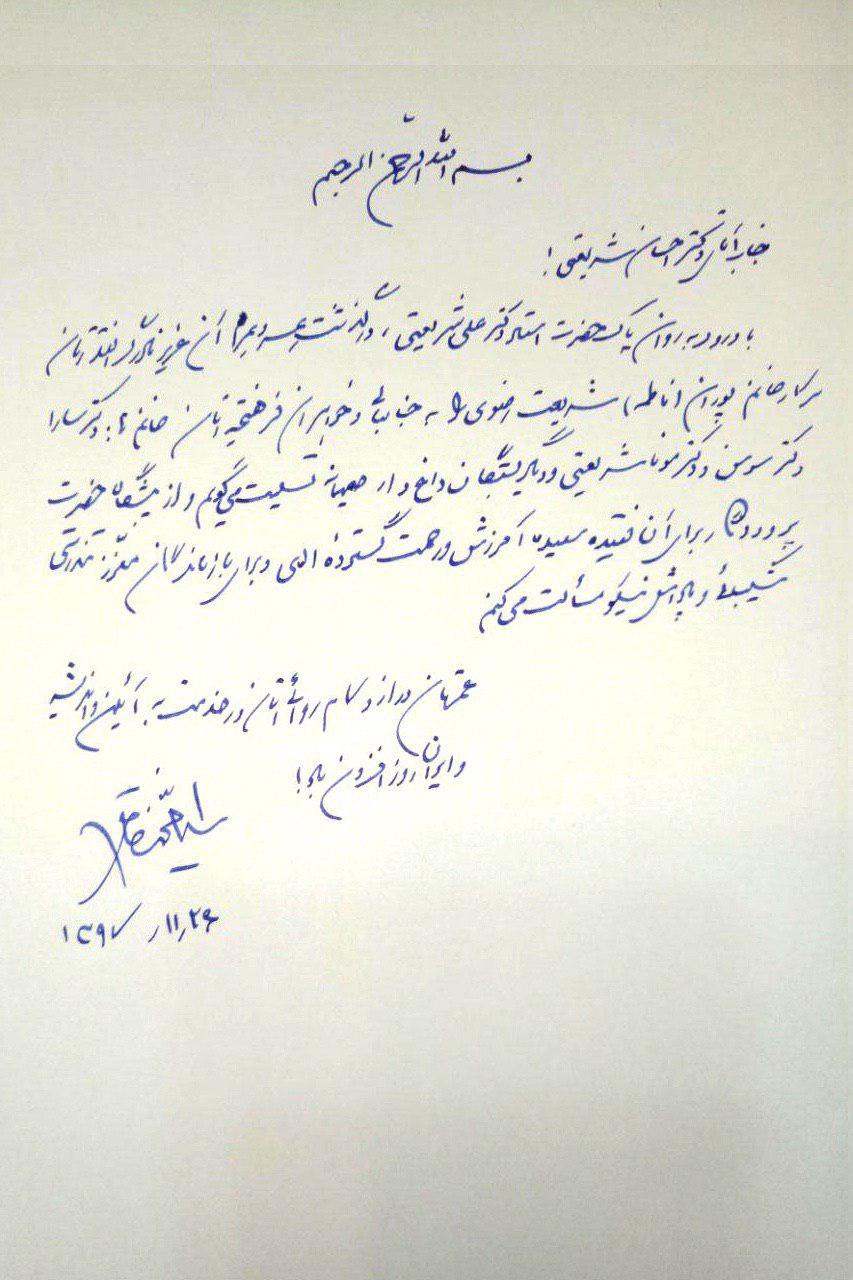 بسم الله الرّحمن الرحیم
جناب آقای دکتر احسان شریعتی!
با درود به روان پاک حضرت استاد دکتر علی شریعتی، درگذشت همسر آن عزیز مادر گرانقدرتان
سرکار خانم پوران (فاطمه) شریعت رضوی را به جنابعالی و خواهران فرهیخته‌تان خانم‌ها: دکتر سارا
دکتر سوسن و دکتر مونا شریعتی و دیگر بستگان داغدار صمیمانه تسلیت می‌گویم و از پیشگاه حضرت
پروردگار برای آن فقیده سعیده آمرزش و رحمت گستردهٔ الهی و برای بازماندگان معزّز تندرستی
شکیبائی و پاداش نیکو مسألت می‌کنم
عمرتان دراز و کام روائی‌تان در خدمت به آئین و اندیشه
و ایران روزافزون باد!
سید محمّد خاتمی
۱۳۹۷٫۱۱٫۲۶